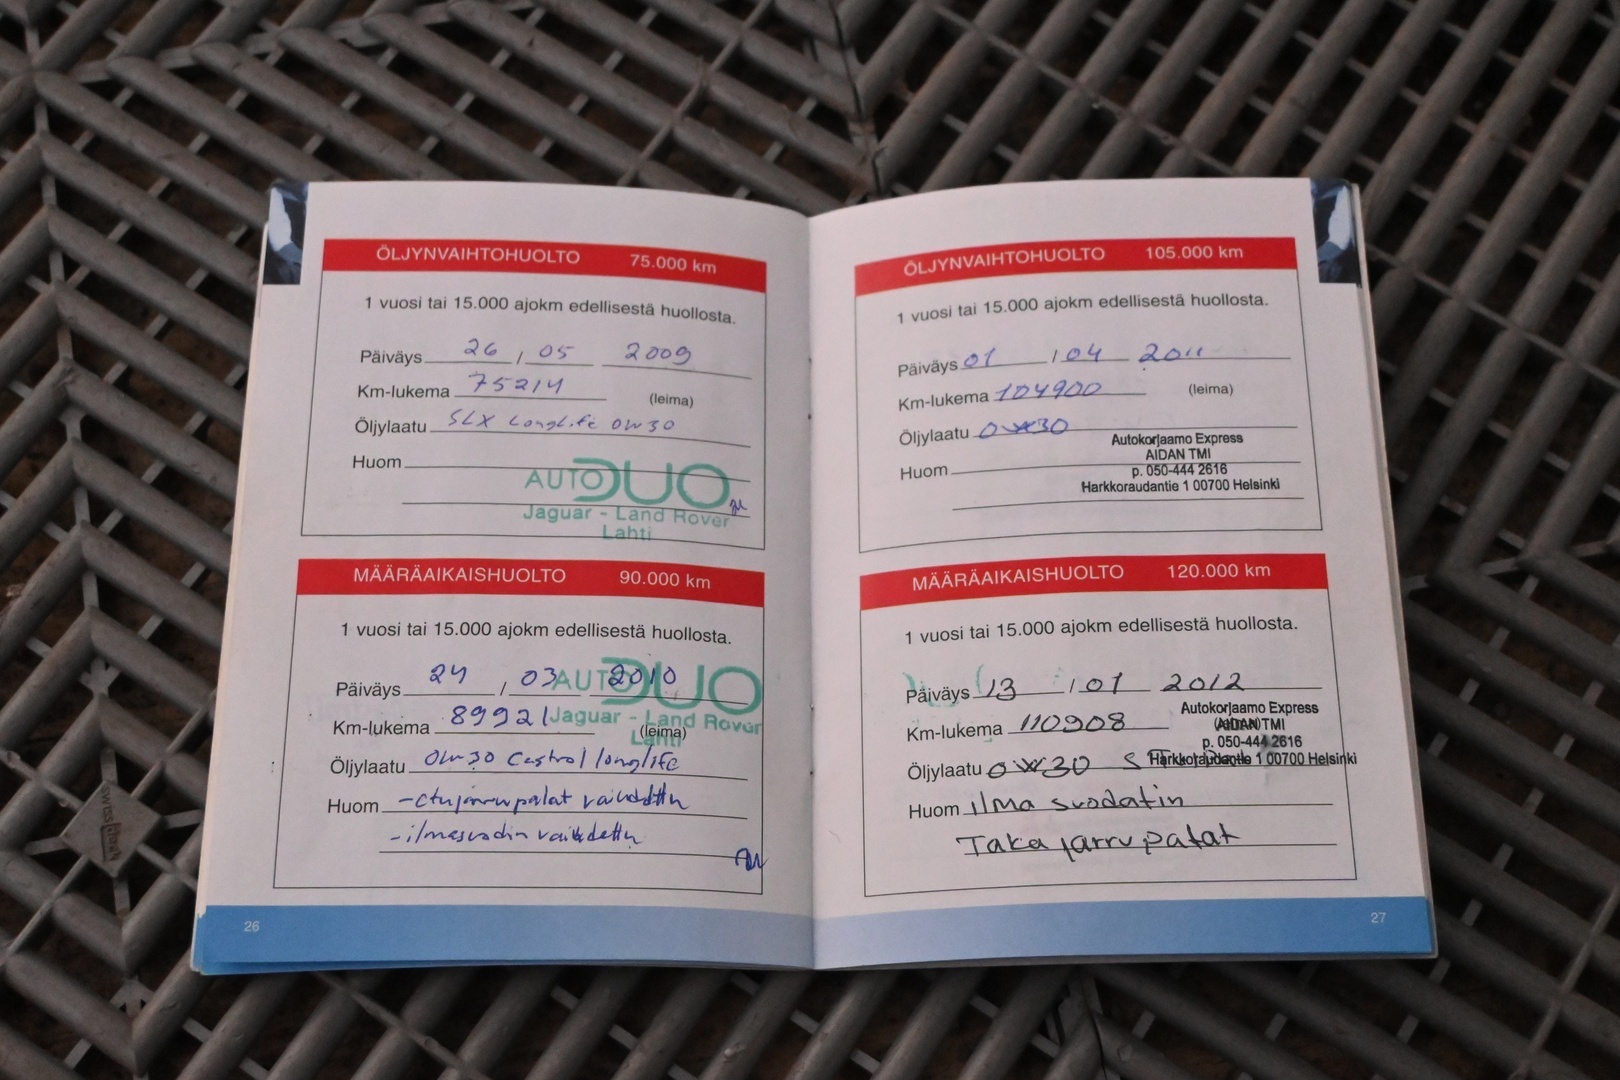 ÖLJYNVAIHTOHUOLTO 75.000 km
1 vuosi tai 15.000 ajokm edellisestä huollosta.
Päiväys 26 / 05 2009
Km-lukema 75214 (leima)
Öljylaatu SLX Longlife 0W30
Huom
AUTODUO
Jaguar - Land Rover
Lahti
MÄÄRÄAIKAISHUOLTO 90.000 km
1 vuosi tai 15.000 ajokm edellisestä huollosta.
Päiväys 24 / 03 2010
AUTODUO
Km-lukema 89921 (leima)
Jaguar - Land Rover
Lahti
Öljylaatu 0W30 Castrol longlife
Huom - etujarrupalat vaihdettu
- ilmasuodin vaihdettu
26
ÖLJYNVAIHTOHUOLTO 105.000 km
1 vuosi tai 15.000 ajokm edellisestä huollosta.
Päiväys 01 / 04 2011
Km-lukema 104900 (leima)
Öljylaatu 0W30
Huom
Autokorjaamo Express
AIDAN TMI
p. 050-444 2616
Harkkoraudantie 1 00700 Helsinki
MÄÄRÄAIKAISHUOLTO 120.000 km
1 vuosi tai 15.000 ajokm edellisestä huollosta.
Päiväys 13 / 01 2012
Km-lukema 110908 (leima)
Autokorjaamo Express
AIDAN TMI
p. 050-444 2616
Harkkoraudantie 1 00700 Helsinki
Öljylaatu 0W30
Huom ilma suodatin
Taka jarru palat
27